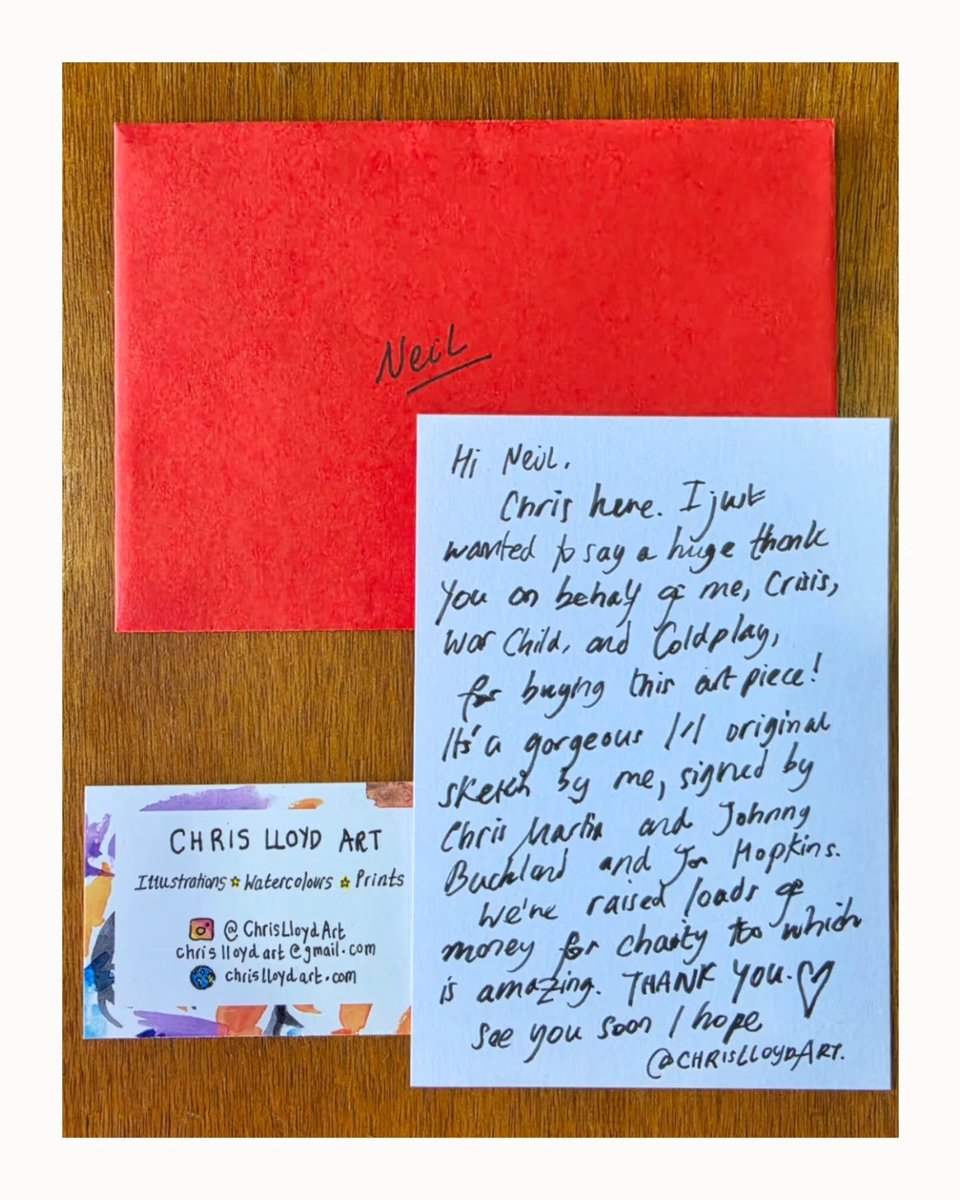 Neil
Hi Neil,
Chris here. I just
wanted to say a huge thank
you on behalf of me, Crisis,
War Child, and Coldplay,
for buying this art piece!
It's a gorgeous 1/1 original
sketch by me, signed by
Chris Martin and Johnny
Buckland and Jon Hopkins.
We've raised loads of
money for charity too which
is amazing. THANK YOU. ♡
See you soon I hope
@CHRISLLOYDART.
CHRIS LLOYD ART
Illustrations ★ Watercolours ★ Prints
@ChrisLloydArt
chrislloydart@gmail.com
chrislloydart.com